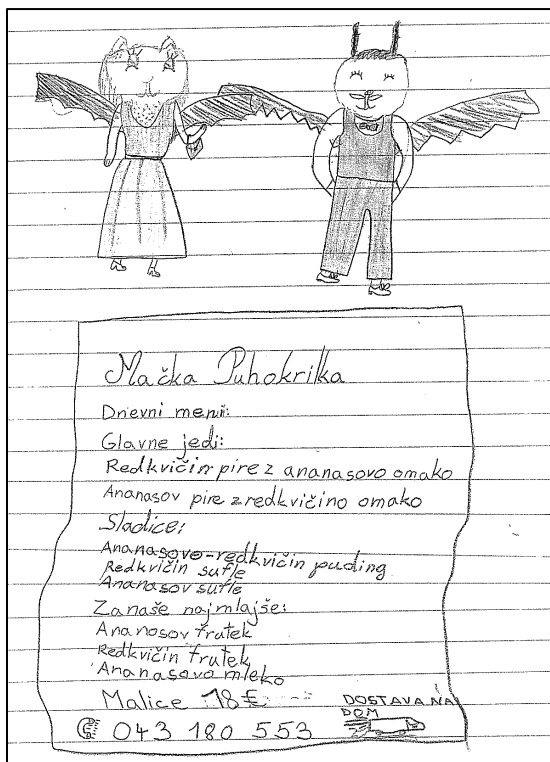 Mačka Puhokrilka
Dnevni meni:
Glavne jedi:
Redkvičin pire z ananasovo omako
Ananasov pire z redkvičino omako
Sladice:
Ananasovo-redkvičin puding
Redkvičin sufle
Ananasov sufle
Za naše najmlajše:
Ananasov frutek
Redkvičin frutek
Ananasovo mleko
Malice 18 €
DOSTAVA NA
DOM
043 180 553